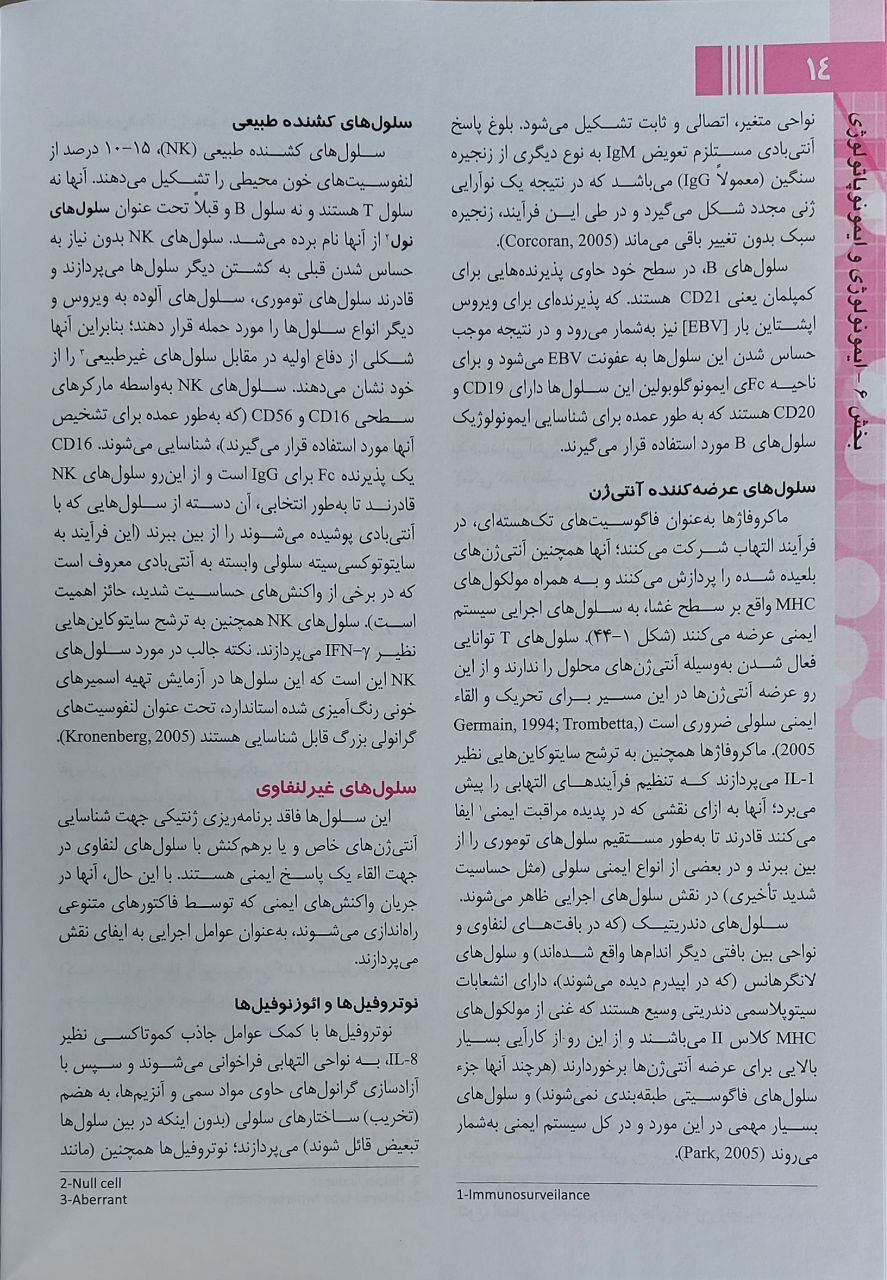 ۱٤
بخش ۶ – ایمونولوژی و ایمونوپاتولوژی
نواحی متغیر، اتصالی و ثابت تشکیل می‌شود. بلوغ پاسخ
آنتی‌بادی مستلزم تعویض IgM به نوع دیگری از زنجیره
سنگین (معمولاً IgG) می‌باشد که در نتیجه یک نوآرایی
ژنی مجدد شکل می‌گیرد و در طی این فرآیند، زنجیره
سبک بدون تغییر باقی می‌ماند (Corcoran, 2005).
سلول‌های B، در سطح خود حاوی پذیرنده‌هایی برای
کمپلمان یعنی CD21 هستند. که پذیرنده‌ای برای ویروس
اپشتاین بار [EBV] نیز به‌شمار می‌رود و در نتیجه موجب
حساس شدن این سلول‌ها به عفونت EBV می‌شود و برای
ناحیه Fcی ایمونوگلوبولین این سلول‌ها دارای CD19 و
CD20 هستند که به طور عمده برای شناسایی ایمونولوژیک
سلول‌های B مورد استفاده قرار می‌گیرند.
سلول‌های عرضه‌کننده آنتی‌ژن
ماکروفاژها به‌عنوان فاگوسیت‌های تک‌هسته‌ای، در
فرآیند التهاب شرکت می‌کنند؛ آنها همچنین آنتی‌ژن‌های
بلعیده شده را پردازش می‌کنند و به همراه مولکول‌های
MHC واقع بر سطح غشا، به سلول‌های اجرایی سیستم
ایمنی عرضه می‌کنند (شکل ۱–۴۴). سلول‌های T توانایی
فعال شدن به‌وسیله آنتی‌ژن‌های محلول را ندارند و از این
رو عرضه آنتی‌ژن‌ها در این مسیر برای تحریک و القاء
ایمنی سلولی ضروری است (Germain, 1994; Trombetta,
2005). ماکروفاژها همچنین به ترشح سایتوکاین‌هایی نظیر
IL-1 می‌پردازند که تنظیم فرآیندهای التهابی را پیش
می‌برد؛ آنها به ازای نقشی که در پدیده مراقبت ایمنی۱ ایفا
می‌کنند قادرند تا به‌طور مستقیم سلول‌های توموری را از
بین ببرند و در بعضی از انواع ایمنی سلولی (مثل حساسیت
شدید تأخیری) در نقش سلول‌های اجرایی ظاهر می‌شوند.
سلول‌های دندریتیک (که در بافت‌های لنفاوی و
نواحی بین بافتی دیگر اندام‌ها واقع شده‌اند) و سلول‌های
لانگرهانس (که در اپیدرم دیده می‌شوند)، دارای انشعابات
سیتوپلاسمی دندریتی وسیع هستند که غنی از مولکول‌های
MHC کلاس II می‌باشند و از این رو از کارآیی بسیار
بالایی برای عرضه آنتی‌ژن‌ها برخوردارند (هرچند آنها جزء
سلول‌های فاگوسیتی طبقه‌بندی نمی‌شوند) و سلول‌های
بسیار مهمی در این مورد و در کل سیستم ایمنی به‌شمار
می‌روند (Park, 2005).
1-Immunosurveilance
سلول‌های کشنده طبیعی
سلول‌های کشنده طبیعی (NK)، ۱۵–۱۰ درصد از
لنفوسیت‌های خون محیطی را تشکیل می‌دهند. آنها نه
سلول T هستند و نه سلول B و قبلاً تحت عنوان سلول‌های
نول۲ از آنها نام برده می‌شد. سلول‌های NK بدون نیاز به
حساس شدن قبلی به کشتن دیگر سلول‌ها می‌پردازند و
قادرند سلول‌های توموری، سلول‌های آلوده به ویروس و
دیگر انواع سلول‌ها را مورد حمله قرار دهند؛ بنابراین آنها
شکلی از دفاع اولیه در مقابل سلول‌های غیرطبیعی۳ را از
خود نشان می‌دهند. سلول‌های NK به‌واسطه مارکرهای
سطحی CD16 و CD56 (که به‌طور عمده برای تشخیص
آنها مورد استفاده قرار می‌گیرند)، شناسایی می‌شوند. CD16
یک پذیرنده Fc برای IgG است و از این‌رو سلول‌های NK
قادرند تا به‌طور انتخابی، آن دسته از سلول‌هایی که با
آنتی‌بادی پوشیده می‌شوند را از بین ببرند (این فرآیند به
سایتوتوکسی‌سیته سلولی وابسته به آنتی‌بادی معروف است
که در برخی از واکنش‌های حساسیت شدید، حائز اهمیت
است). سلول‌های NK همچنین به ترشح سایتوکاین‌هایی
نظیر IFN-γ می‌پردازند. نکته جالب در مورد سلول‌های
NK این است که این سلول‌ها در آزمایش تهیه اسمیرهای
خونی رنگ‌آمیزی شده استاندارد، تحت عنوان لنفوسیت‌های
گرانولی بزرگ قابل شناسایی هستند (Kronenberg, 2005).
سلول‌های غیرلنفاوی
این سلول‌ها فاقد برنامه‌ریزی ژنتیکی جهت شناسایی
آنتی‌ژن‌های خاص و یا برهم‌کنش با سلول‌های لنفاوی در
جهت القاء یک پاسخ ایمنی هستند. با این حال، آنها در
جریان واکنش‌های ایمنی که توسط فاکتورهای متنوعی
راه‌اندازی می‌شوند، به‌عنوان عوامل اجرایی به ایفای نقش
می‌پردازند.
نوتروفیل‌ها و ائوزنوفیل‌ها
نوتروفیل‌ها با کمک عوامل جاذب کموتاکسی نظیر
IL-8، به نواحی التهابی فراخوانی می‌شوند و سپس با
آزادسازی گرانول‌های حاوی مواد سمی و آنزیم‌ها، به هضم
(تخریب) ساختارهای سلولی (بدون اینکه در بین سلول‌ها
تبعیض قائل شوند) می‌پردازند؛ نوتروفیل‌ها همچنین (مانند
2-Null cell
3-Aberrant